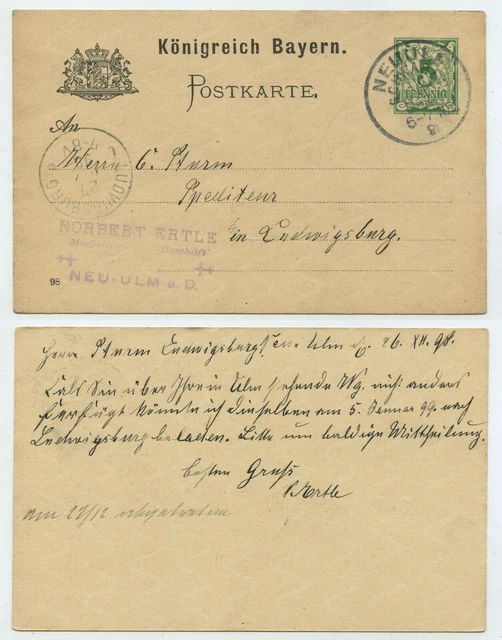 Königreich Bayern.
POSTKARTE.
NEU-ULM
5
PFENNIG
6-7
An
Herrn C. Sturm
Spediteur
in Ludwigsburg.
LUDWIGSBURG
27
7-8
NORBERT ERTLE
Geschäft
NEU-ULM a. D.
98
Herrn Sturm Ludwigsburg Neu-Ulm d. 26. XII. 98.
Falls Sie über Ihren in Ulm stehende Wg. nicht anders
verfügt könnte ich denselben am 5. Januar 99. nach
Ludwigsburg beladen. Bitte um baldige Mittheilung.
besten Gruß
N. Ertle
am 27/12